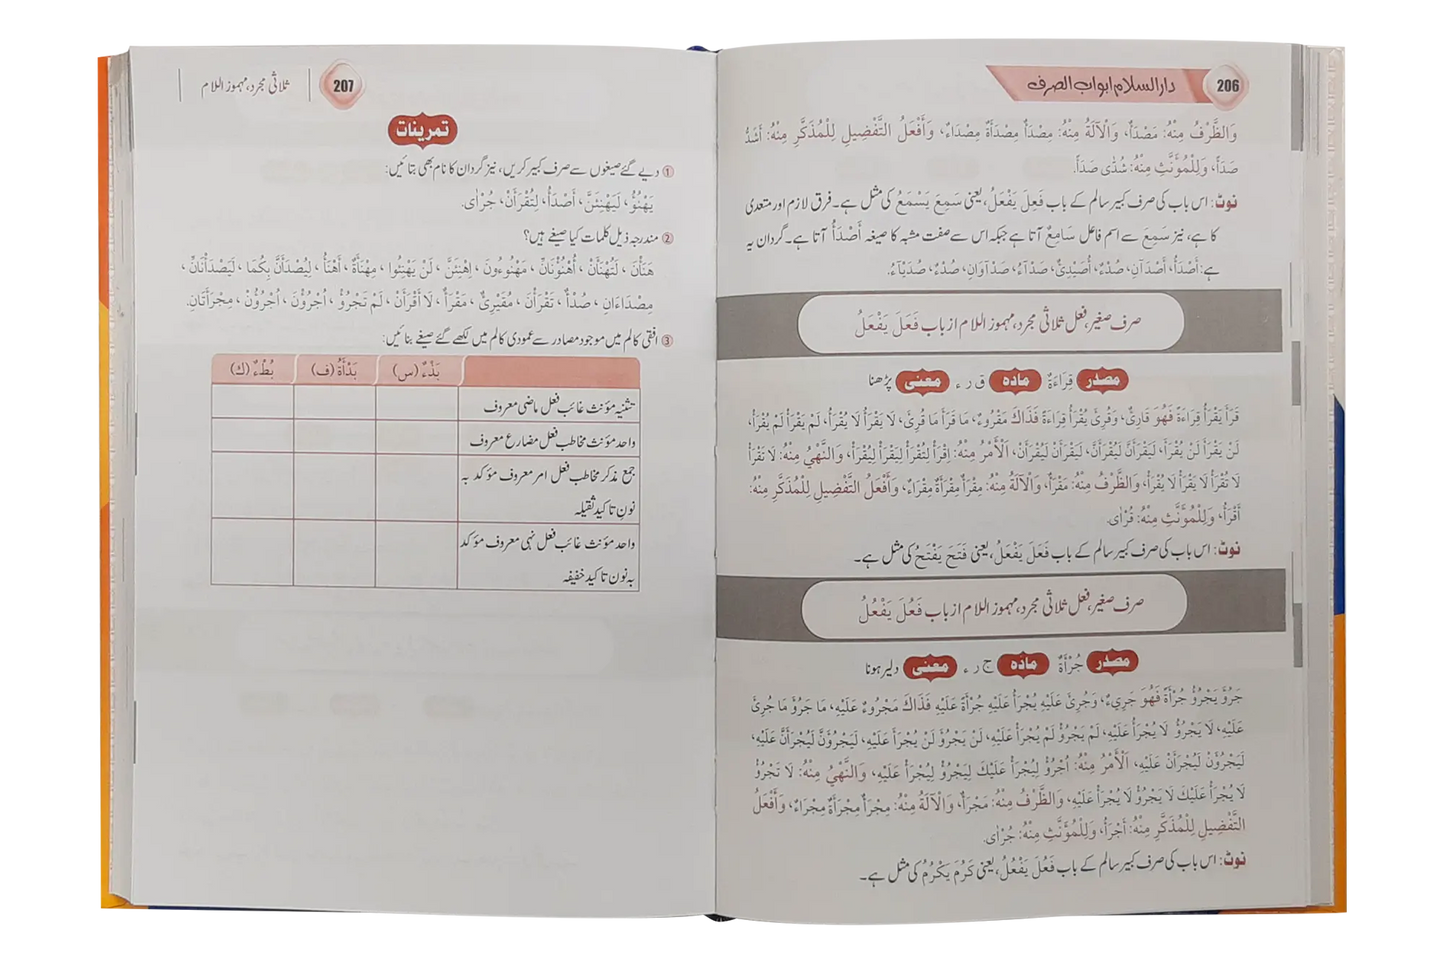 206
دارالسلام ابواب الصرف
وَالظَّرْفُ مِنْهُ: مَصْدَأٌ، وَالْآلَةُ مِنْهُ: مِصْدَأٌ مِصْدَأَةٌ مِصْدَاءٌ، وَأَفْعَلُ التَّفْضِيلِ لِلْمُذَكَّرِ مِنْهُ: أَشَدُّ
صَدَأً، وَلِلْمُؤَنَّثِ مِنْهُ: شُدّٰى صَدَأً.
نوٹ: اس باب کی صرف کبیر سالم کے باب فَعِلَ يَفْعَلُ، یعنی سَمِعَ يَسْمَعُ کی مثل ہے۔ فرق لازم اور متعدی
کا ہے، نیز سَمِعَ سے اسم فاعل سَامِعٌ آتا ہے جبکہ اس سے صفت مشبہ کا صیغہ أَصْدَأُ آتا ہے۔ گردان یہ
ہے: أَصْدَأُ، أَصْدَآنِ، صُدْءٌ، أُصَيْدِئٌ، صَدْآءُ، صَدْآوَانِ، صُدْءٌ، صُدَيْآءُ.
صرف صغیر، فعل ثلاثی مجرد، مہموز اللام از باب فَعَلَ يَفْعَلُ
مصدر قِرَاءَةٌ مادہ ق ر ء معنی پڑھنا
قَرَأَ يَقْرَأُ قِرَاءَةً فَهُوَ قَارِئٌ، وَقُرِئَ يُقْرَأُ قِرَاءَةً فَذَاكَ مَقْرُوءٌ، مَا قَرَأَ مَا قُرِئَ، لَا يَقْرَأُ لَا يُقْرَأُ، لَمْ يَقْرَأْ لَمْ يُقْرَأْ،
لَنْ يَقْرَأَ لَنْ يُقْرَأَ، لَيَقْرَأَنَّ لَيُقْرَأَنَّ، لَيَقْرَأَنْ لَيُقْرَأَنْ، اَلْأَمْرُ مِنْهُ: اِقْرَأْ لِتُقْرَأْ لِيَقْرَأْ لِيُقْرَأْ، وَالنَّهْيُ مِنْهُ: لَا تَقْرَأْ
لَا تُقْرَأْ لَا يَقْرَأْ لَا يُقْرَأْ، وَالظَّرْفُ مِنْهُ: مَقْرَأٌ، وَالْآلَةُ مِنْهُ: مِقْرَأٌ مِقْرَأَةٌ مِقْرَاءٌ، وَأَفْعَلُ التَّفْضِيلِ لِلْمُذَكَّرِ مِنْهُ:
أَقْرَأُ، وَلِلْمُؤَنَّثِ مِنْهُ: قُرْاٰى.
نوٹ: اس باب کی صرف کبیر سالم کے باب فَعَلَ يَفْعَلُ، یعنی فَتَحَ يَفْتَحُ کی مثل ہے۔
صرف صغیر، فعل ثلاثی مجرد، مہموز اللام از باب فَعُلَ يَفْعُلُ
مصدر جُرْأَةٌ مادہ ج ر ء معنی دلیر ہونا
جَرُؤَ يَجْرُؤُ جُرْأَةً فَهُوَ جَرِيءٌ، وَجُرِئَ عَلَيْهِ يُجْرَأُ عَلَيْهِ جُرْأَةً عَلَيْهِ فَذَاكَ مَجْرُوءٌ عَلَيْهِ، مَا جَرُؤَ مَا جُرِئَ
عَلَيْهِ، لَا يَجْرُؤُ لَا يُجْرَأُ عَلَيْهِ، لَمْ يَجْرُؤْ لَمْ يُجْرَأْ عَلَيْهِ، لَنْ يَجْرُؤَ لَنْ يُجْرَأَ عَلَيْهِ، لَيَجْرُؤَنَّ لَيُجْرَأَنَّ عَلَيْهِ،
لَيَجْرُؤَنْ لَيُجْرَأَنْ عَلَيْهِ، اَلْأَمْرُ مِنْهُ: اُجْرُؤْ لِيُجْرَأْ عَلَيْكَ لِيَجْرُؤْ لِيُجْرَأْ عَلَيْهِ، وَالنَّهْيُ مِنْهُ: لَا تَجْرُؤْ
لَا يُجْرَأْ عَلَيْكَ لَا يَجْرُؤْ لَا يُجْرَأْ عَلَيْهِ، وَالظَّرْفُ مِنْهُ: مَجْرَأٌ، وَالْآلَةُ مِنْهُ: مِجْرَأٌ مِجْرَأَةٌ مِجْرَاءٌ، وَأَفْعَلُ
التَّفْضِيلِ لِلْمُذَكَّرِ مِنْهُ: أَجْرَأُ، وَلِلْمُؤَنَّثِ مِنْهُ: جُرْاٰى.
نوٹ: اس باب کی صرف کبیر سالم کے باب فَعُلَ يَفْعُلُ، یعنی كَرُمَ يَكْرُمُ کی مثل ہے۔
207
ثلاثی مجرد، مہموز اللام
تمرینات
① دیے گئے صیغوں سے صرف کبیر کریں، نیز گردان کا نام بھی بتائیں:
يَهْنُؤُ، لَيَهْنِئَنَّ، أَصْدَأُ، لِتُقْرَأَنْ، جُرْاٰى.
② مندرجہ ذیل کلمات کیا صیغے ہیں؟
هَنَأْنَ ، لَتُهْنَأَنْ ، أُهْنُؤْنَانِّ ، مَهْنُوءُونَ ، اِهْنِئَنَّ ، لَنْ يَهْنِئُوا ، مِهْنَأَةٌ ، أَهْنَأُ ، لِيُصْدَأَنَّ بِكُمَا ، لَيَصْدَأْنَانِّ ،
مِصْدَاءَانِ ، صُدْأٌ ، تَقْرَأْنَ ، مُقَيْرِئٌ ، مَقْرَأٌ ، لَا أَقْرَأَنْ ، لَمْ تَجْرُؤْ ، اُجْرُؤْنَ ، اُجْرُؤْنْ ، مِجْرَأَتَانِ.
③ افقی کالم میں موجود مصادر سے عمودی کالم میں لکھے گئے صیغے بنائیں:
بَذْءٌ (س) بَدْأَةٌ (ف) بُطْءٌ (ك)
تثنیہ مؤنث غائب فعل ماضی معروف
واحد مؤنث مخاطب فعل مضارع معروف
جمع مذکر مخاطب فعل امر معروف مؤکد بہ
نون تاکید ثقیلہ
واحد مؤنث غائب فعل نہی معروف مؤکد
بہ نون تاکید خفیفہ